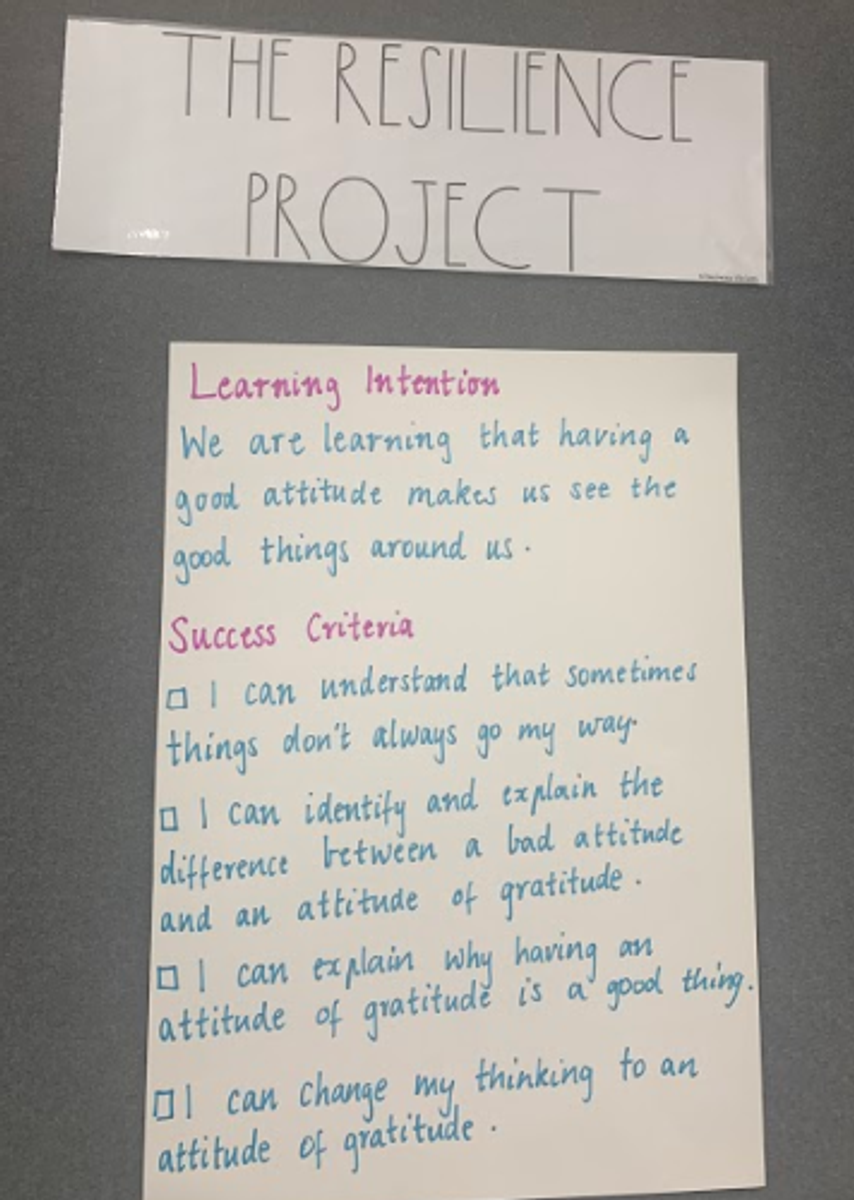 THE RESILIENCE
PROJECT
Learning Intention
We are learning that having a
good attitude makes us see the
good things around us.
Success Criteria
□ I can understand that sometimes
things don't always go my way.
□ I can identify and explain the
difference between a bad attitude
and an attitude of gratitude.
□ I can explain why having an
attitude of gratitude is a good thing.
□ I can change my thinking to an
attitude of gratitude.